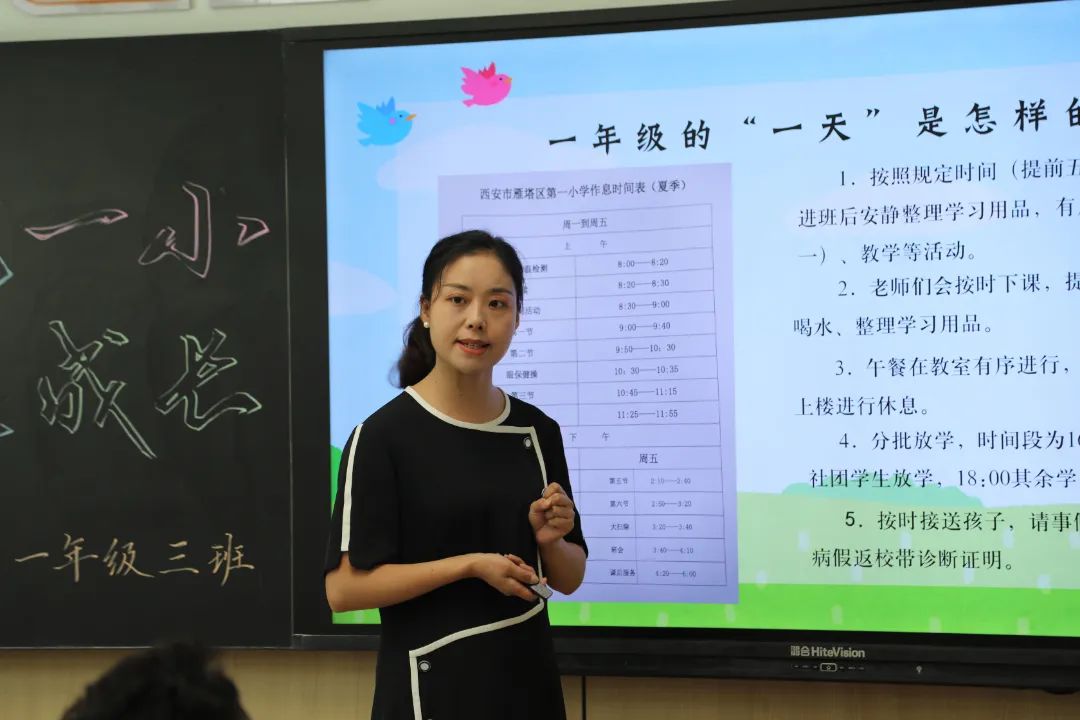 一小
成长
一年级三班
一年级的“一天”是怎样的
西安市雁塔区第一小学作息时间表（夏季）
周一到周五
上 午
检测 8:00——8:20
8:20——8:30
活动 8:30——9:00
一节 9:00——9:40
第二节 9:50——10:30
眼保健操 10:30——10:35
第三节 10:45——11:15
11:25——11:55
下 午
周五
第五节 2:10——2:40
第六节 2:50——3:20
大扫除 3:20——3:40
班会 3:40——4:10
课后服务 4:20——6:00
1. 按照规定时间（提前五
进班后安静整理学习用品，有
一）、教学等活动。
2. 老师们会按时下课，提
喝水、整理学习用品。
3. 午餐在教室有序进行，
上楼进行休息。
4. 分批放学，时间段为16
社团学生放学，18:00其余学
5. 按时接送孩子，请事假
病假返校带诊断证明。
鸿合HiteVision